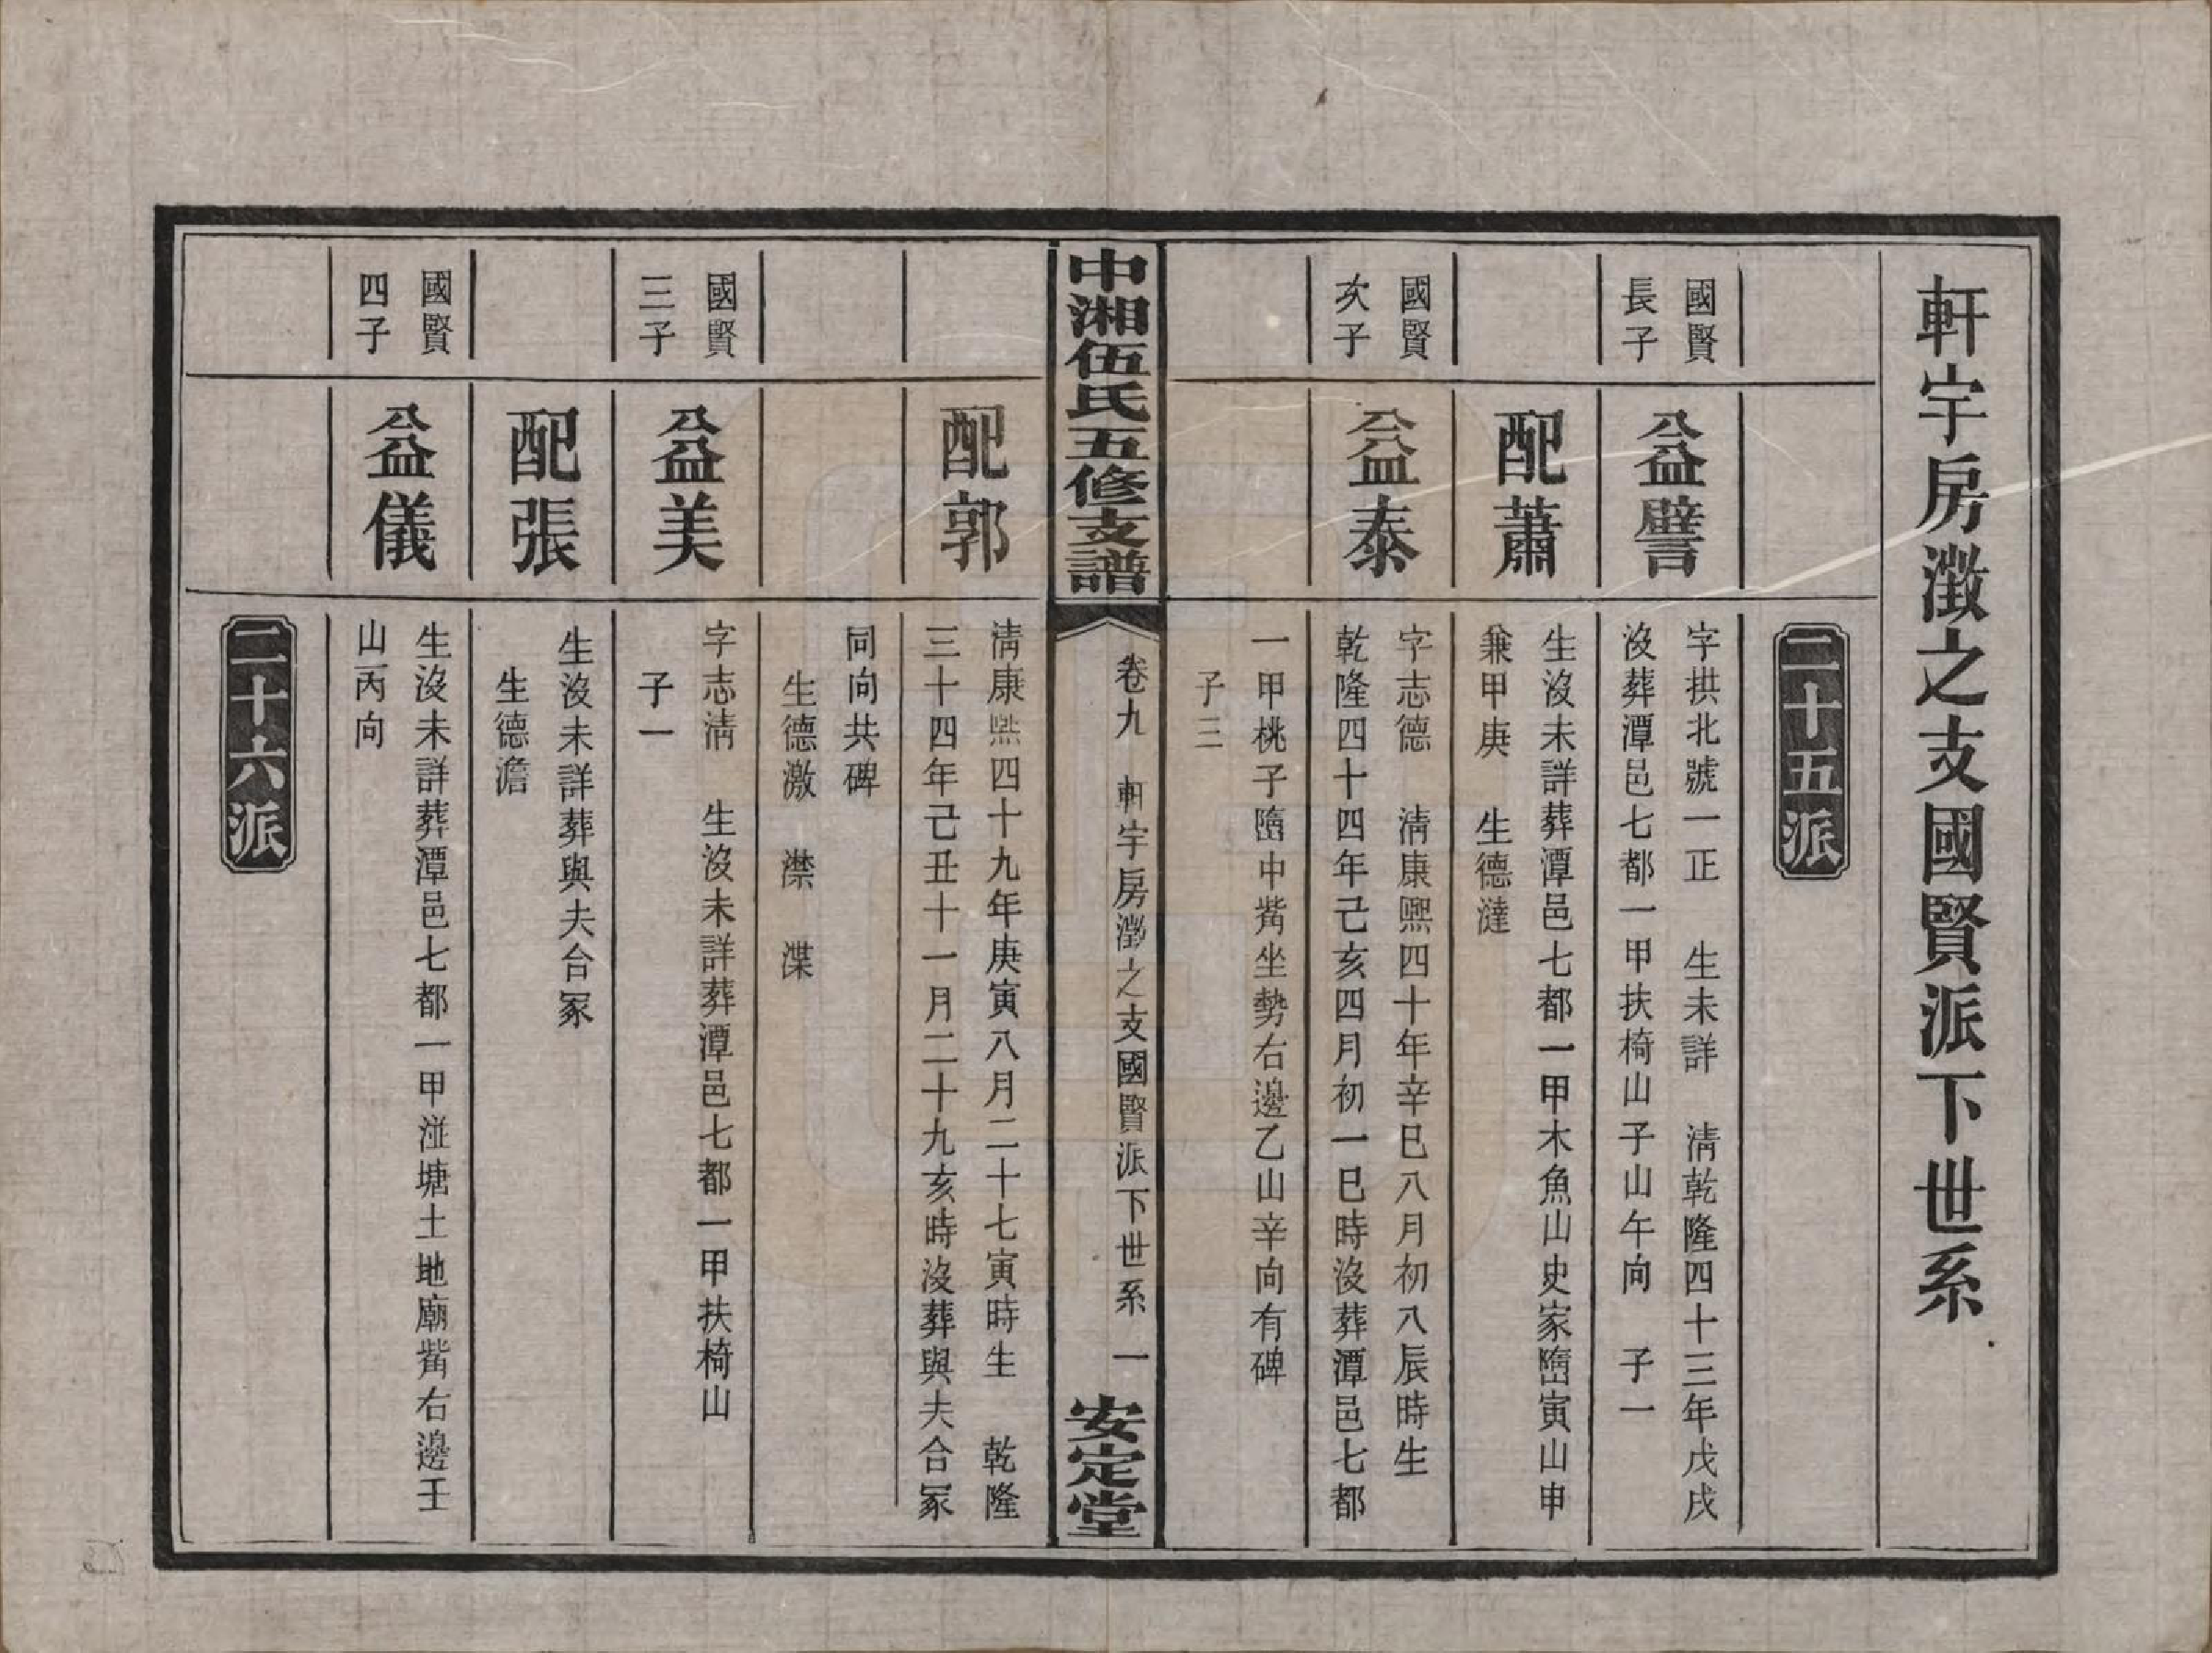 軒宇房瀓之支國賢派下世系
二十五派
國賢
長子
益譬
字拱北號一正　生未詳　清乾隆四十三年戊戌
沒葬潭邑七都一甲扶椅山子山午向　子一
配蕭
生沒未詳葬潭邑七都一甲木魚山史家𡺾寅山申
兼甲庚　生德澾
國賢
次子
益泰
字志德　清康熙四十年辛巳八月初八辰時生
乾隆四十四年己亥四月初一巳時沒葬潭邑七都
一甲桃子𡺾中觜坐勢右邊乙山辛向有碑
子三
中湘伍氏五修支譜
卷九　軒宇房瀓之支國賢派下世系　一
安定堂
配郭
清康熙四十九年庚寅八月二十七寅時生　乾隆
三十四年己丑十一月二十九亥時沒葬與夫合冢
同向共碑
生德激　澿　渫
國賢
三子
益美
字志清　生沒未詳葬潭邑七都一甲扶椅山
子一
配張
生沒未詳葬與夫合冢
生德澹
國賢
四子
益儀
生沒未詳葬潭邑七都一甲湴塘土地廟觜右邊壬
山丙向
二十六派